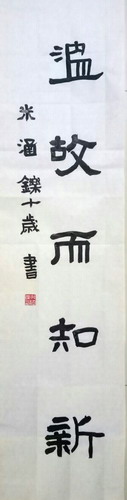 溫故而知新
米涵鑠十歲書